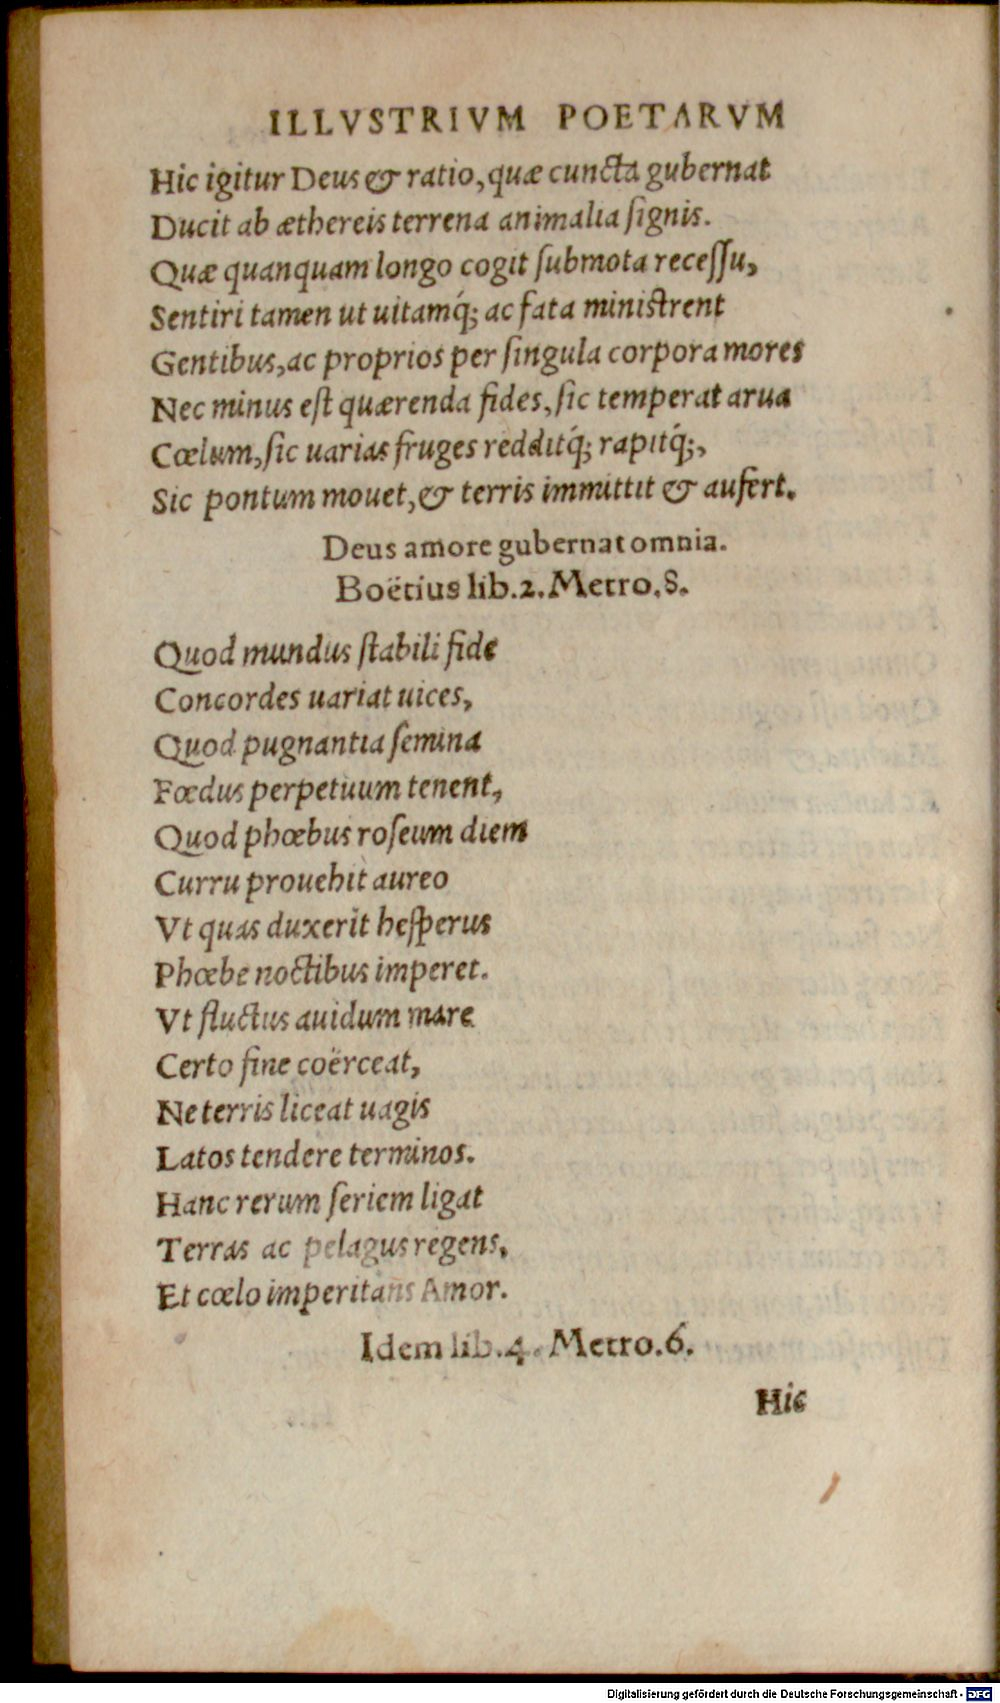 ILLVSTRIVM POETARVM
Hic igitur Deus & ratio, quæ cuncta gubernat
Ducit ab æthereis terrena animalia ſignis.
Quæ quanquam longo cogit ſubmota receſſu,
Sentiri tamen ut uitamq́; ac fata miniſtrent
Gentibus, ac proprios per ſingula corpora mores
Nec minus eſt quærenda fides, ſic temperat arua
Cœlum, ſic uarias fruges redditq́; rapitq́;,
Sic pontum mouet, & terris immittit & aufert.
Deus amore gubernat omnia.
Boëtius lib.2. Metro.8.
Quod mundus ſtabili fide
Concordes uariat uices,
Quod pugnantia ſemina
Fœdus perpetuum tenent,
Quod phœbus roſeum diem
Curru prouehit aureo
Vt quas duxerit heſperus
Phœbe noctibus imperet.
Vt fluctus auidum mare
Certo fine coërceat,
Ne terris liceat uagis
Latos tendere terminos.
Hanc rerum ſeriem ligat
Terras ac pelagus regens,
Et cœlo imperitans Amor.
Idem lib.4. Metro.6.
Hic
Digitalisierung gefördert durch die Deutsche Forschungsgemeinschaft - DFG